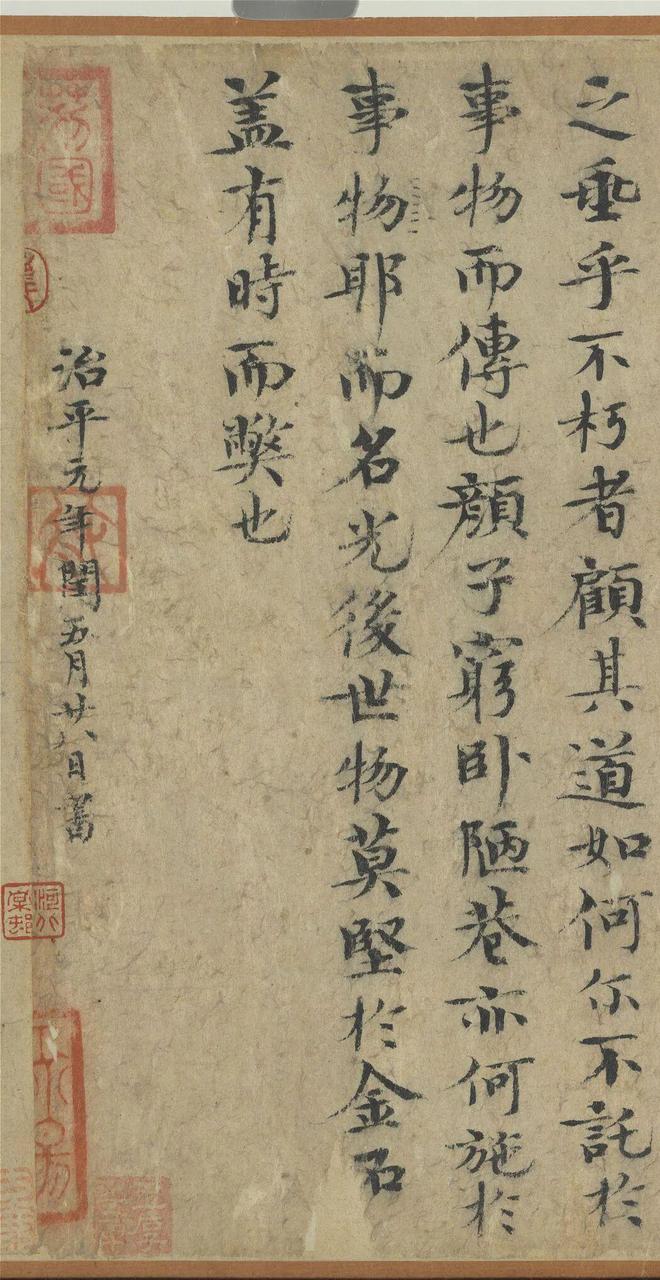 之垂乎不朽者顧其道如何尒不託於
事物而傳也顏子窮卧陋巷亦何施於
事物耶而名光後世物莫堅於金石
盖有時而獘也
治平元年閏五月廿八日書